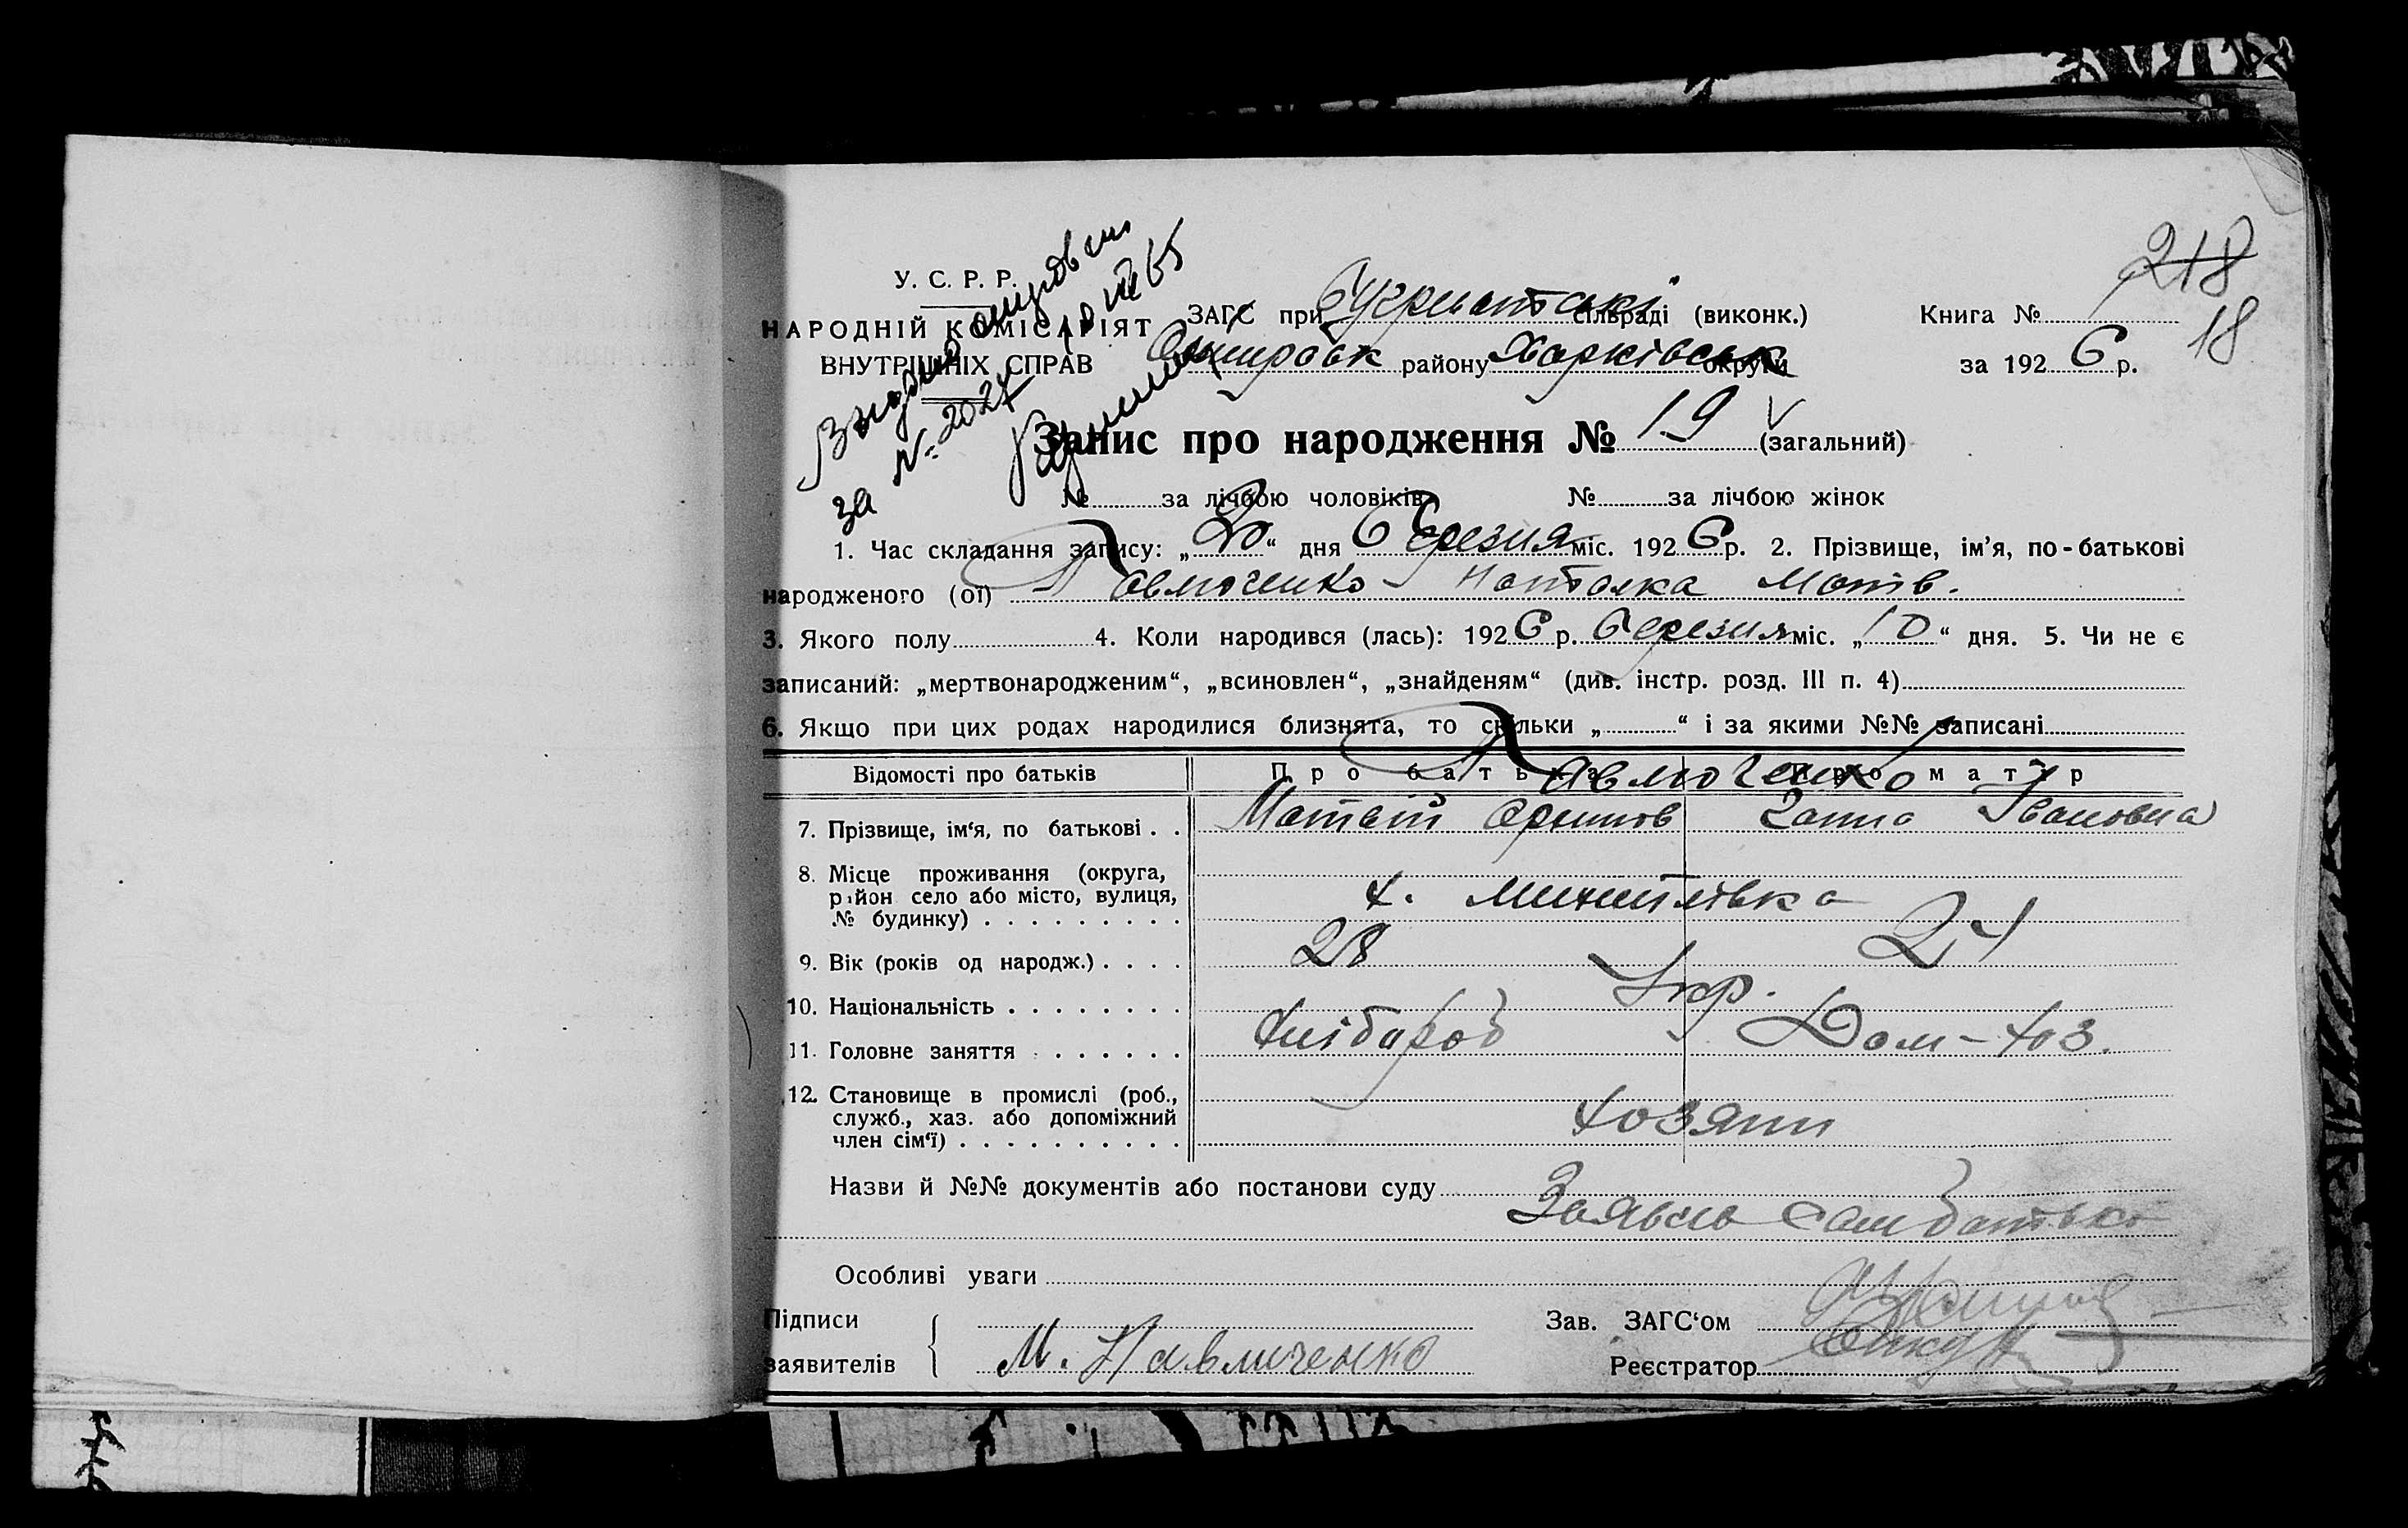 218
18
У. С. Р. Р.
НАРОДНІЙ КОМІСАРІЯТ
ВНУТРІШНІХ СПРАВ
за № 2027
ЗАГС при сільраді (виконк.)
району Харківськ округи
Книга №
за 1926 р.
Запис про народження № 19 (загальний)
№ за лічбою чоловіків № за лічбою жінок
1. Час складання запису: „20“ дня березня міс. 1926 р. 2. Прізвище, ім’я, по-батькові
народженого (ої) Павлюченко Наталка Матв.
3. Якого полу 4. Коли народився (лась): 1926 р. березня міс. „10“ дня. 5. Чи не є
записаний: „мертвонародженим“, „всиновлен“, „знайденям“ (див. інстр. розд. III п. 4)
6. Якщо при цих родах народилися близнята, то скільки „ “ і за якими №№ записані
Відомості про батьків Про батька Про матір
Павлюченко
7. Прізвище, ім‘я, по батькові . . Матвій Ганна Івановна
8. Місце проживання (округа,
район село або місто, вулиця,
№ будинку) . . . . . . . . . х. Михайлівка
9. Вік (років од народж.) . . . . 28 24
10. Національність . . . . . . . . Укр.
11. Головне заняття . . . . . . . Хлібороб Дом-хоз.
12. Становище в промислі (роб.,
служб., хаз. або допоміжний
член сім‘ї) . . . . . . . . . . хозяїн
Назви й №№ документів або постанови суду
Заявив сам батько
Особливі уваги
Підписи
заявителів М. Павличенко
Зав. ЗАГС‘ом
Реєстратор